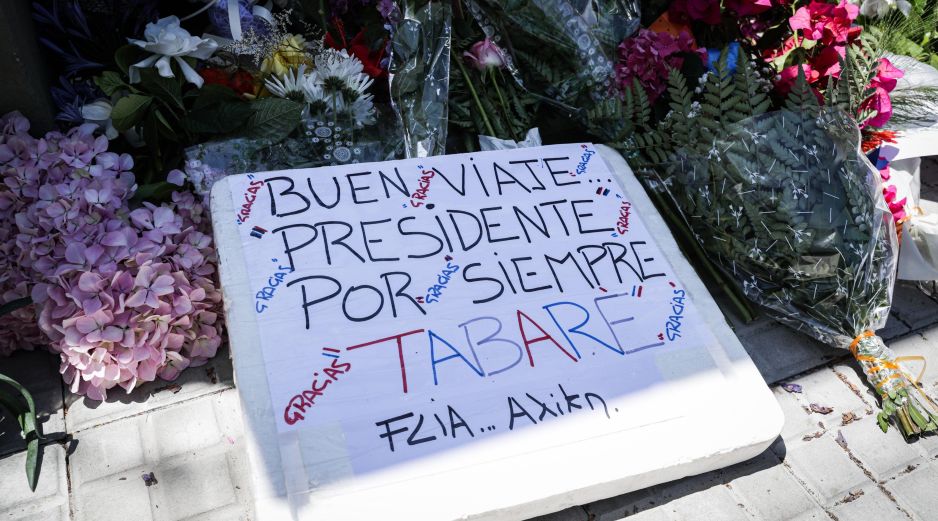 "GRACIAS" BUEN "GRACIAS" VIAJE...
"PRESIDENTE "GRACIAS"
"GRACIAS" POR "GRACIAS" SIEMPRE
"TABARÉ" "GRACIAS"
"GRACIAS"
FLIA...